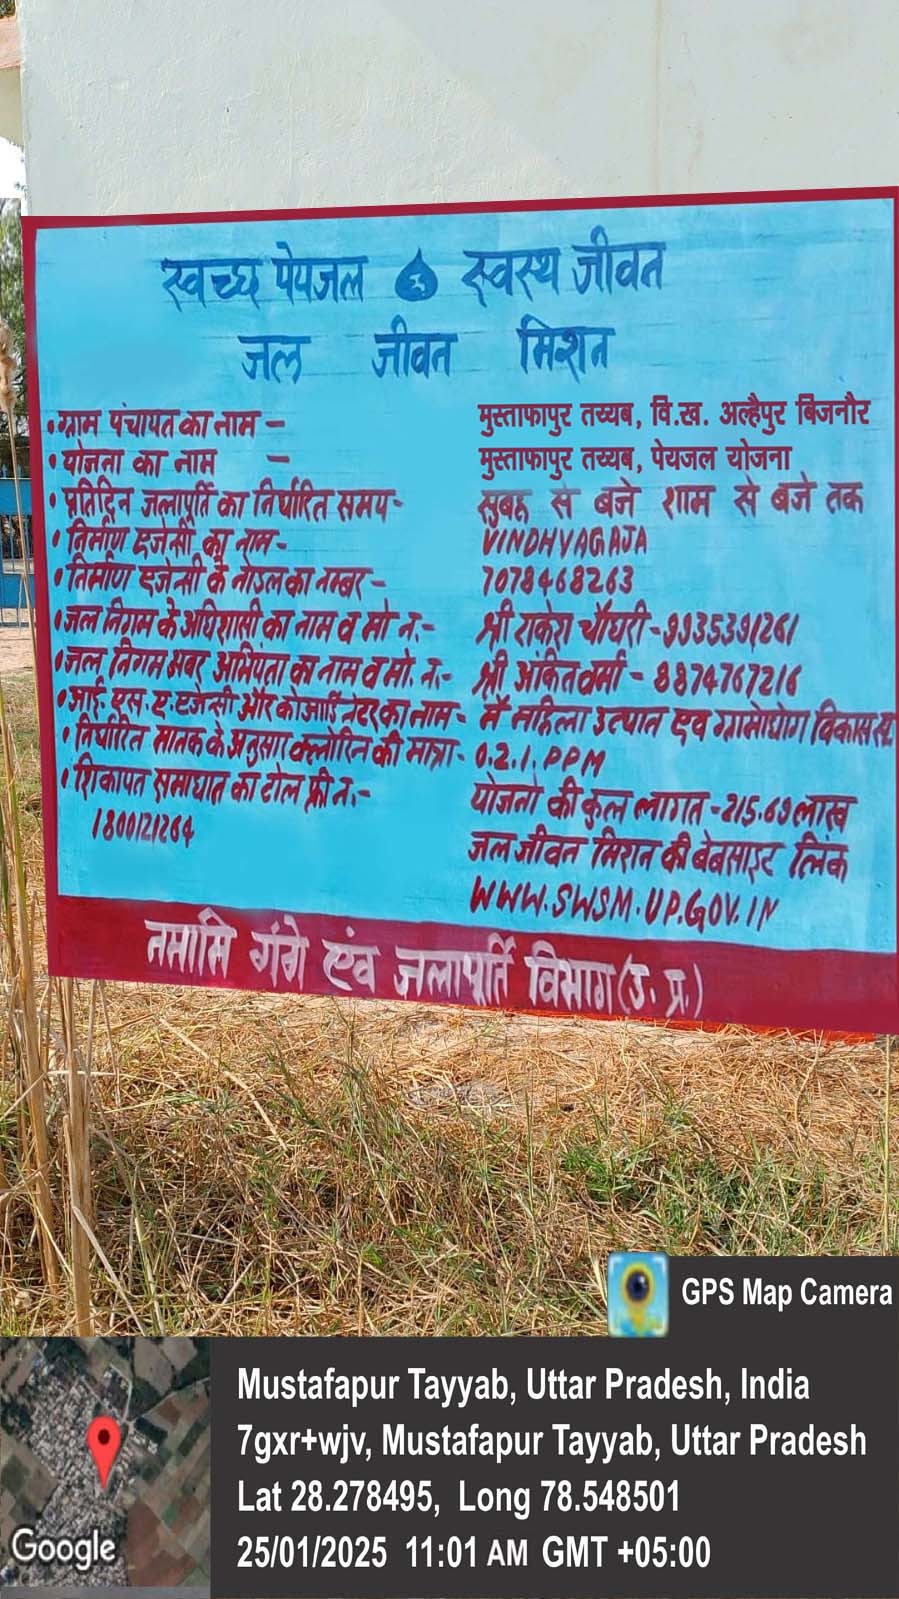 स्वच्छ पेयजल स्वस्थ जीवन
जल जीवन मिशन
• ग्राम पंचायत का नाम – मुस्ताफापुर तय्यब, वि.ख. अल्हैपुर बिजनौर
• योजना का नाम – मुस्ताफापुर तय्यब, पेयजल योजना
• प्रतिदिन जलापूर्ति का निर्धारित समय- सुबह से बजे शाम से बजे तक
• निर्माण एजेन्सी का नाम- VINDHYAGAJA
• निर्माण एजेन्सी के नोडल का नम्बर– 7078468263
• जल निगम के अधिशासी का नाम व मो न.- श्री राकेश चौधरी-9935391261
• जल निगम अबर अभियंता का नाम व मो. न.- श्री अंकित वर्मा - 8874767216
• आई. एस. ए. एजेन्सी और कोआर्डिनेटर का नाम- मैं महिला उत्थान एवं ग्रामोद्योग विकास सं.
• निर्धारित मानक के अनुसार क्लोरिन की मात्रा- 0.2.1.PPM
• शिकायत समाधान का टोल फ्री न.- योजना की कुल लागत-215.69 लाख
1800121264 जल जीवन मिशन की बेबसाइट लिंक
WWW.SWSM.UP.GOV.IN
नमामि गंगे एंव जलापूर्ति विभाग (उ. प्र.)
GPS Map Camera
Mustafapur Tayyab, Uttar Pradesh, India
7gxr+wjv, Mustafapur Tayyab, Uttar Pradesh
Lat 28.278495, Long 78.548501
25/01/2025 11:01 AM GMT +05:00
Google